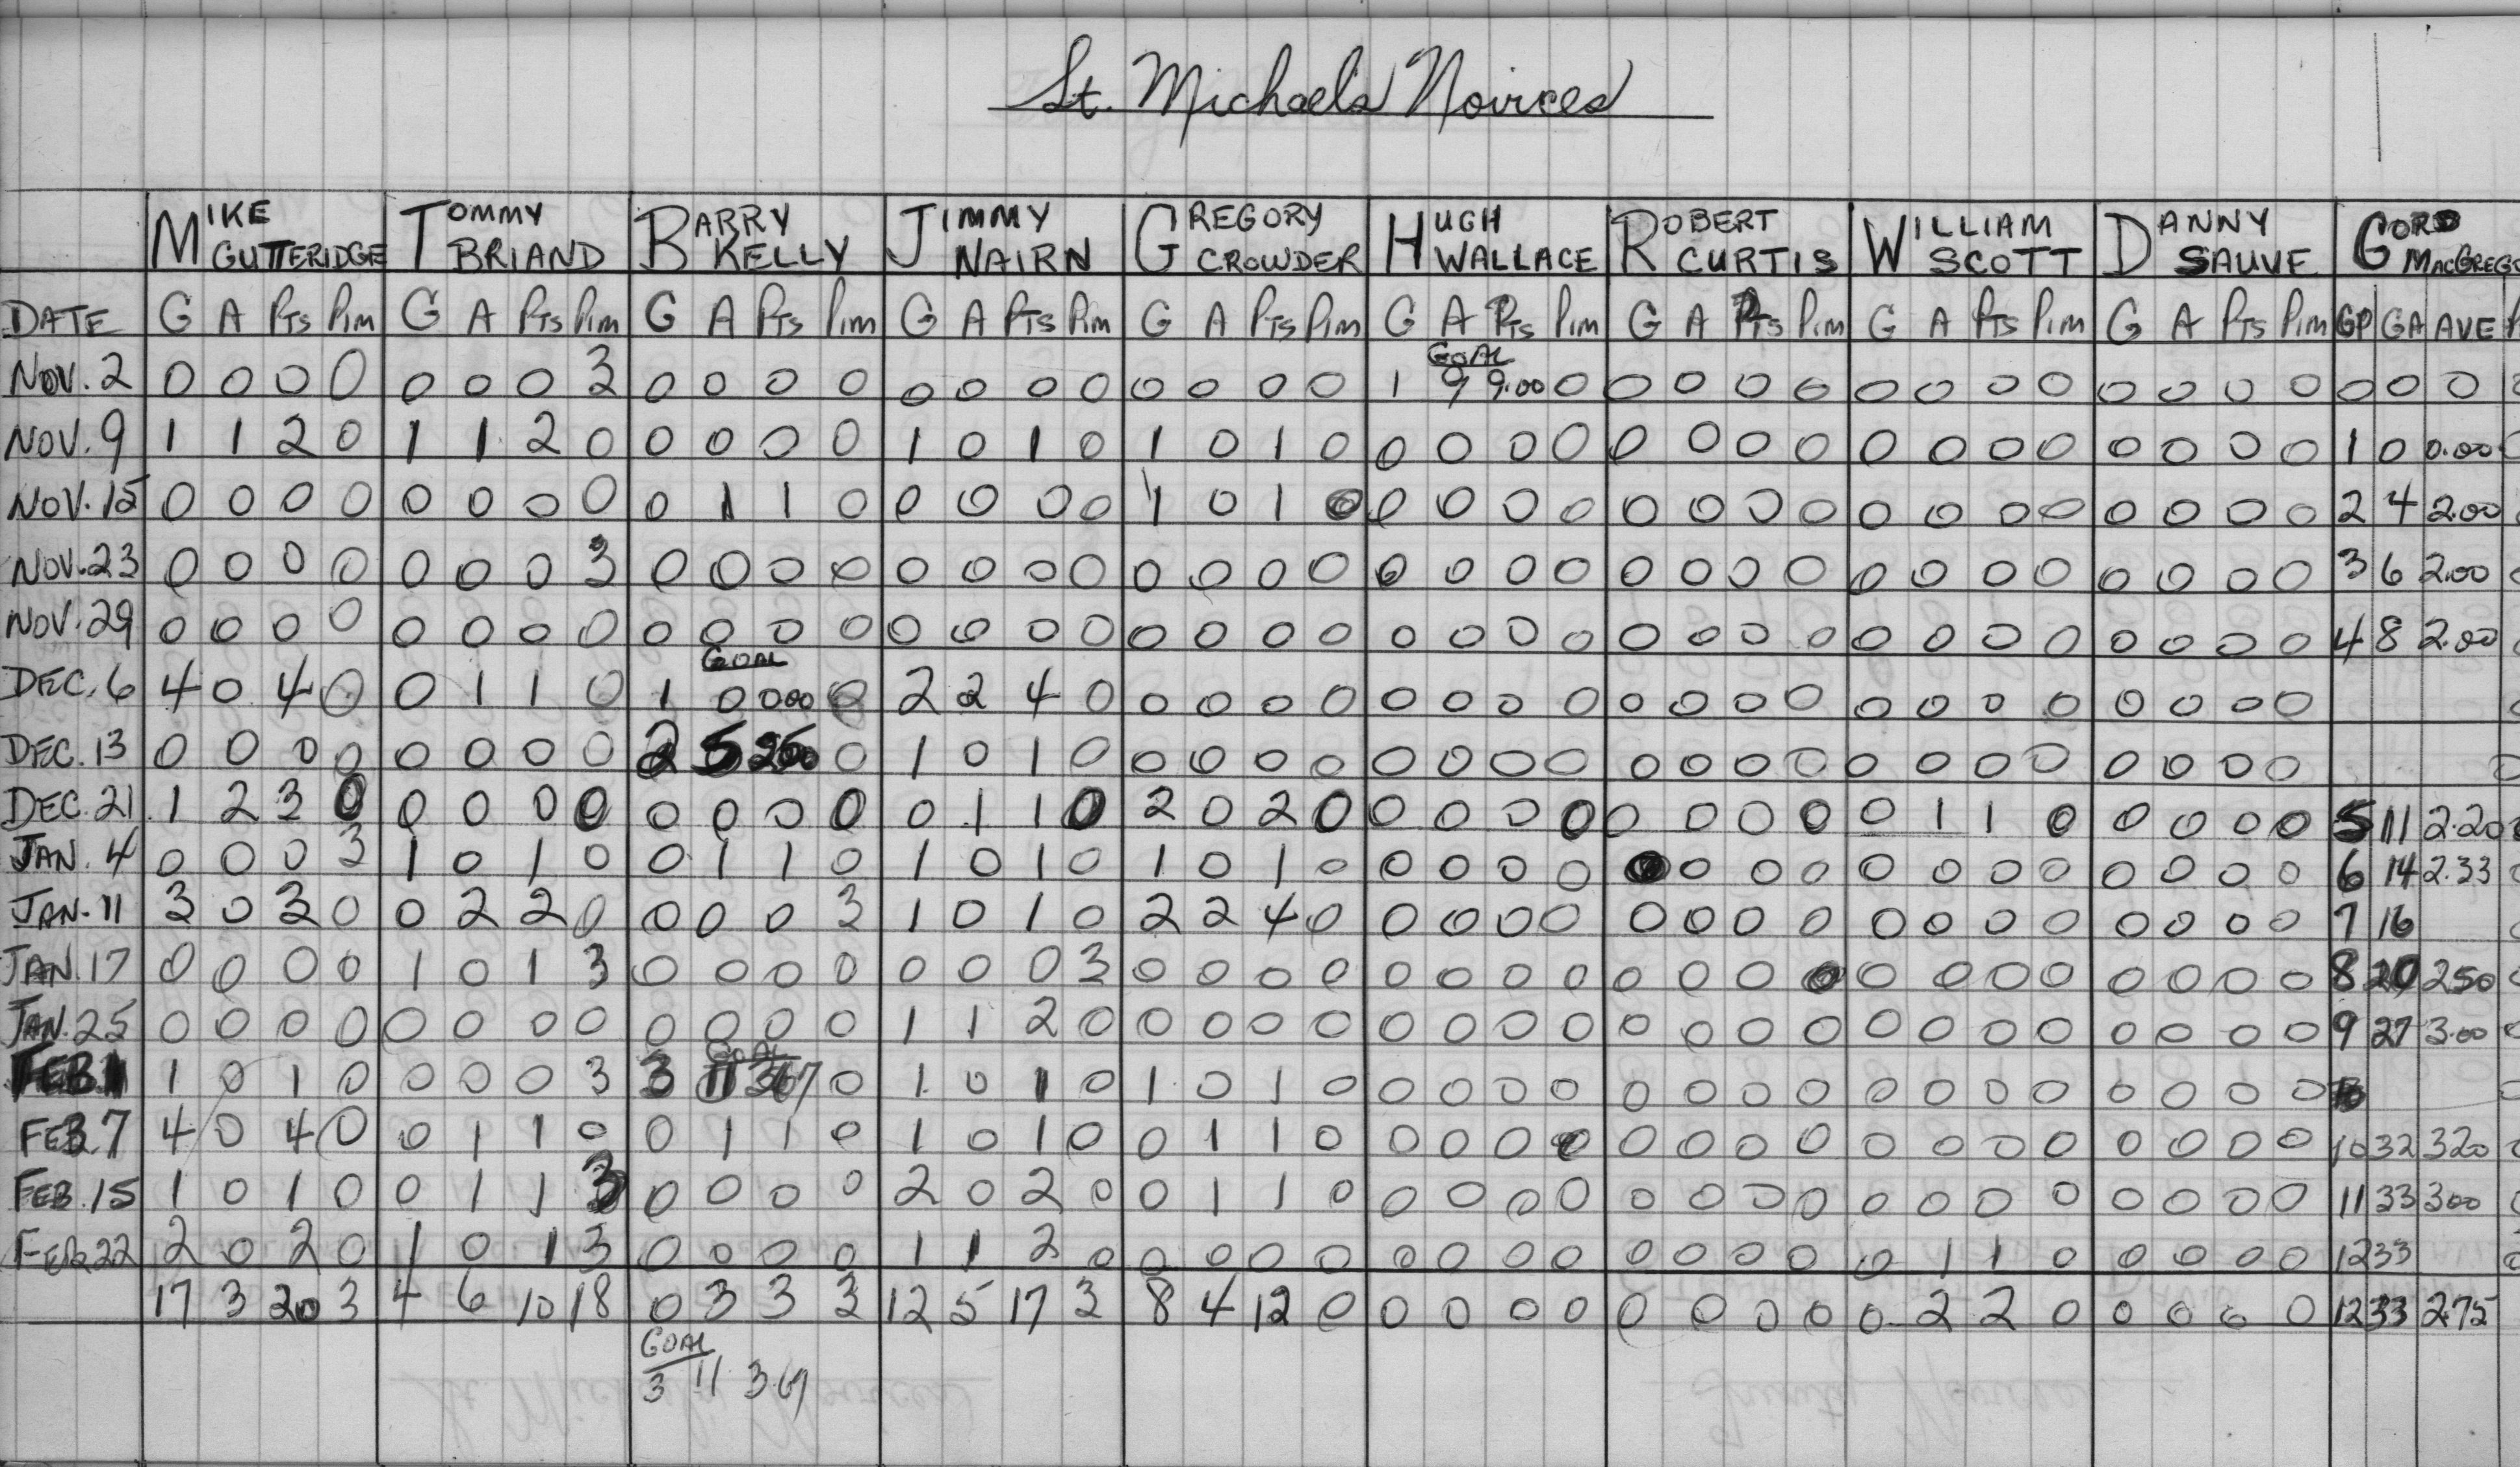 St. Michaels Novices
MIKE GUTTERIDGE TOMMY BRIAND BARRY KELLY JIMMY NAIRN GREGORY CROWDER HUGH WALLACE ROBERT CURTIS WILLIAM SCOTT DANNY SAUVE GORD MACGREGO
DATE G A PTS PIM G A PTS PIM G A PTS PIM G A PTS PIM G A PTS PIM G A PTS PIM G A PTS PIM G A PTS PIM G A PTS PIM GP GA AVE
GOAL
NOV. 2 0 0 0 0 0 0 0 3 0 0 0 0 0 0 0 0 0 0 0 0 1 9 9.00 0 0 0 0 0 0 0 0 0 0 0 0 0 0 0 0
NOV. 9 1 1 2 0 1 1 2 0 0 0 0 0 1 0 1 0 1 0 1 0 0 0 0 0 0 0 0 0 0 0 0 0 0 0 0 0 1 0 0.00
NOV. 15 0 0 0 0 0 0 0 0 0 1 1 0 0 0 0 0 1 0 1 0 0 0 0 0 0 0 0 0 0 0 0 0 0 0 0 0 2 4 2.00
NOV. 23 0 0 0 0 0 0 0 3 0 0 0 0 0 0 0 0 0 0 0 0 0 0 0 0 0 0 0 0 0 0 0 0 0 0 0 0 3 6 2.00
NOV. 29 0 0 0 0 0 0 0 0 0 0 0 0 0 0 0 0 0 0 0 0 0 0 0 0 0 0 0 0 0 0 0 0 0 0 0 0 4 8 2.00
GOAL
DEC. 6 4 0 4 0 0 1 1 0 1 0 0.00 0 2 2 4 0 0 0 0 0 0 0 0 0 0 0 0 0 0 0 0 0 0 0 0 0
DEC. 13 0 0 0 0 0 0 0 0 2 5 250 0 1 0 1 0 0 0 0 0 0 0 0 0 0 0 0 0 0 0 0 0 0 0 0 0
DEC. 21 1 2 3 0 0 0 0 0 0 0 0 0 0 1 1 0 2 0 2 0 0 0 0 0 0 0 0 0 0 1 1 0 0 0 0 0 5 11 2.20
JAN. 4 0 0 0 3 1 0 1 0 0 1 1 0 1 0 1 0 1 0 1 0 0 0 0 0 0 0 0 0 0 0 0 0 0 0 0 0 6 14 2.33
JAN. 11 3 0 3 0 0 2 2 0 0 0 0 3 1 0 1 0 2 2 4 0 0 0 0 0 0 0 0 0 0 0 0 0 0 0 0 0 7 16
JAN. 17 0 0 0 0 1 0 1 3 0 0 0 0 0 0 0 3 0 0 0 0 0 0 0 0 0 0 0 0 0 0 0 0 0 0 0 0 8 20 250
JAN. 25 0 0 0 0 0 0 0 0 0 0 0 0 1 1 2 0 0 0 0 0 0 0 0 0 0 0 0 0 0 0 0 0 0 0 0 0 9 27 3.00
GOAL
FEB 1 1 0 1 0 0 0 0 3 3 11 367 0 1 0 1 0 1 0 1 0 0 0 0 0 0 0 0 0 0 0 0 0 0 0 0 0
FEB. 7 4 0 4 0 0 1 1 0 0 1 1 0 1 0 1 0 0 1 1 0 0 0 0 0 0 0 0 0 0 0 0 0 0 0 0 0 10 32 320
FEB. 15 1 0 1 0 0 1 1 3 0 0 0 0 2 0 2 0 0 1 1 0 0 0 0 0 0 0 0 0 0 0 0 0 0 0 0 0 11 33 300
FEB 22 2 0 2 0 1 0 1 3 0 0 0 0 1 1 2 0 0 0 0 0 0 0 0 0 0 0 0 0 0 1 1 0 0 0 0 0 12 33
17 3 20 3 4 6 10 18 0 3 3 3 12 5 17 3 8 4 12 0 0 0 0 0 0 0 0 0 0 2 2 0 0 0 0 0 12 33 2.75
GOAL
3 11 3.67